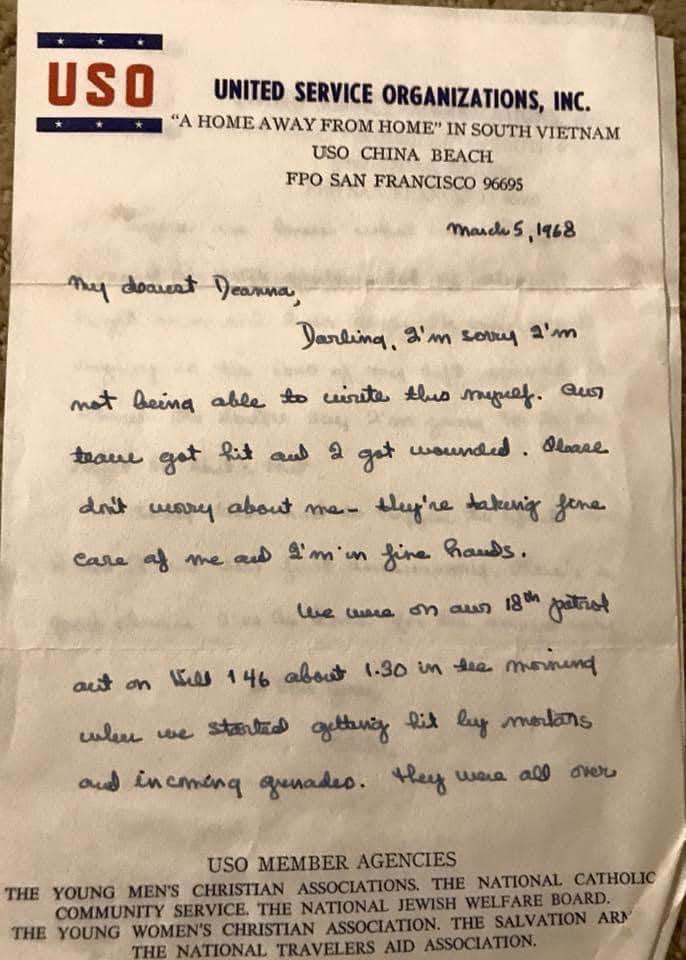 USO
UNITED SERVICE ORGANIZATIONS, INC.
"A HOME AWAY FROM HOME" IN SOUTH VIETNAM
USO CHINA BEACH
FPO SAN FRANCISCO 96695
March 5, 1968
My dearest Deanna,
Darling, I'm sorry I'm
not being able to write this myself. Our
team got hit and I got wounded. Please
don't worry about me - they're taking fine
care of me and I'm in fine hands.
We were on our 18th patrol
out on Hill 146 about 1.30 in the morning
when we started getting hit by mortars
and incoming grenades. They were all over
USO MEMBER AGENCIES
THE YOUNG MEN'S CHRISTIAN ASSOCIATIONS. THE NATIONAL CATHOLIC
COMMUNITY SERVICE. THE NATIONAL JEWISH WELFARE BOARD.
THE YOUNG WOMEN'S CHRISTIAN ASSOCIATION. THE SALVATION ARM
THE NATIONAL TRAVELERS AID ASSOCIATION.